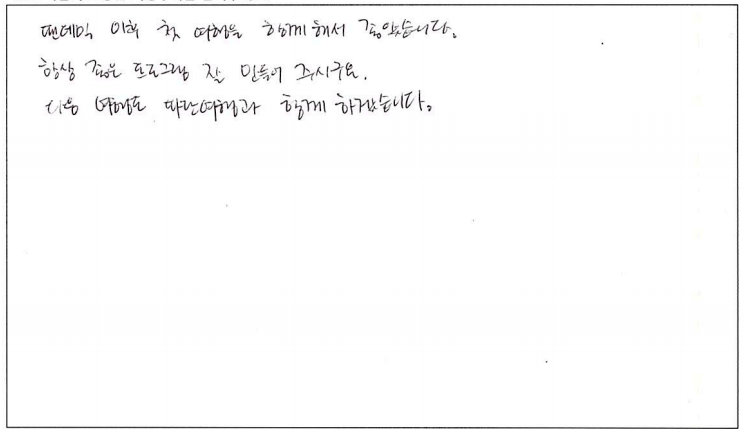 팬데믹 이후 첫 여행을 함께해서 좋았습니다.
항상 좋은 프로그램 잘 만들어 주시구요.
다음 여행도 따란여행과 함께 하겠습니다.